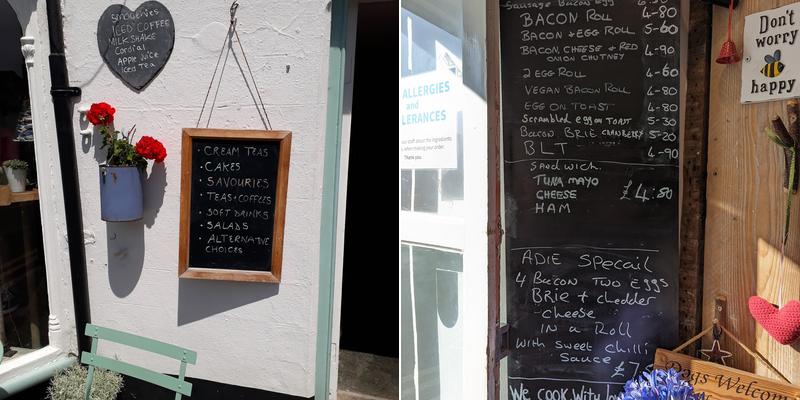 Smoothies
ICED COFFEE
MILKSHAKE
Cordial
Apple Juice
Iced Tea
• CREAM TEAS
• CAKES
• SAVOURIES
• TEAS+COFFEES
• SOFT DRINKS
• SALADS
• ALTERNATIVE
CHOICES
ALLERGIES
and
LERANCES
our staff about the ingredients
when making your order.
Thank you.
Sausage Bacon Egg
BACON ROLL 4-80
BACON + EGG ROLL 5-60
BACON, CHEESE & RED 4-90
ONION CHUTNEY
2 EGG ROLL 4-60
VEGAN BACON ROLL 4-80
EGG ON TOAST 4-80
Scrambled egg on TOAST 5-30
Bacon BRIE CRANBERRY 5-20
BLT 4-90
Sandwich.
TUNA MAYO
CHEESE £4:80
HAM
ADIE Specail
4 Bacon Two Eggs
BRIE + chedder
cheese
IN a Roll
With sweet chilli
Sauce
£7
We cook with
Don't
worry
happy
Dogs Welcome